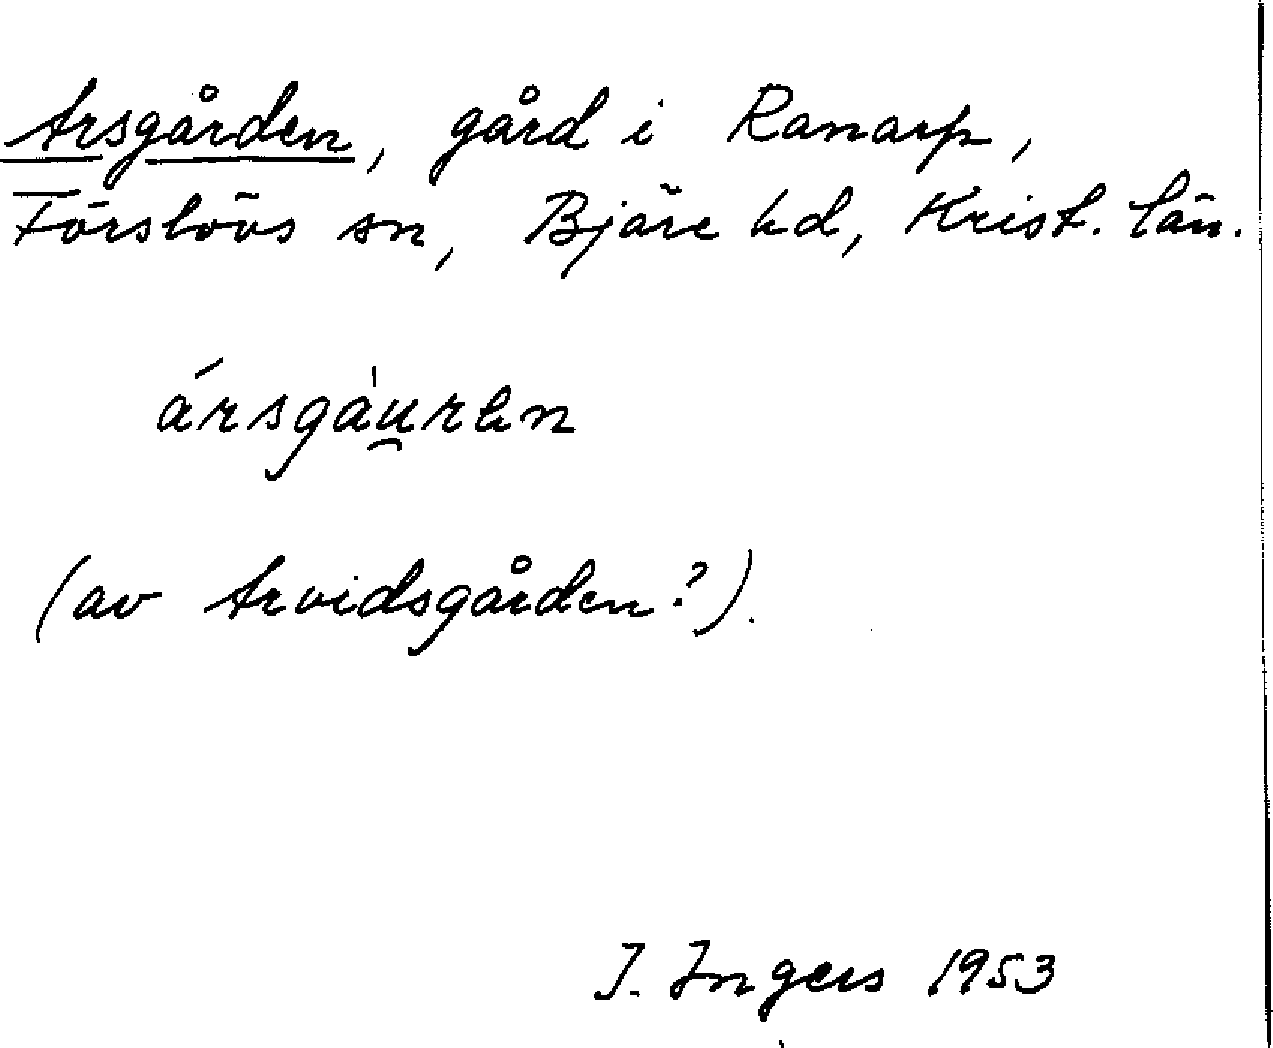 Arsgården, gård i Ranarp,
Förslövs sn, Bjäre hd, Krist. län.
ársgàu̯ren
(av Arvidsgården?).
I. Ingers 1953